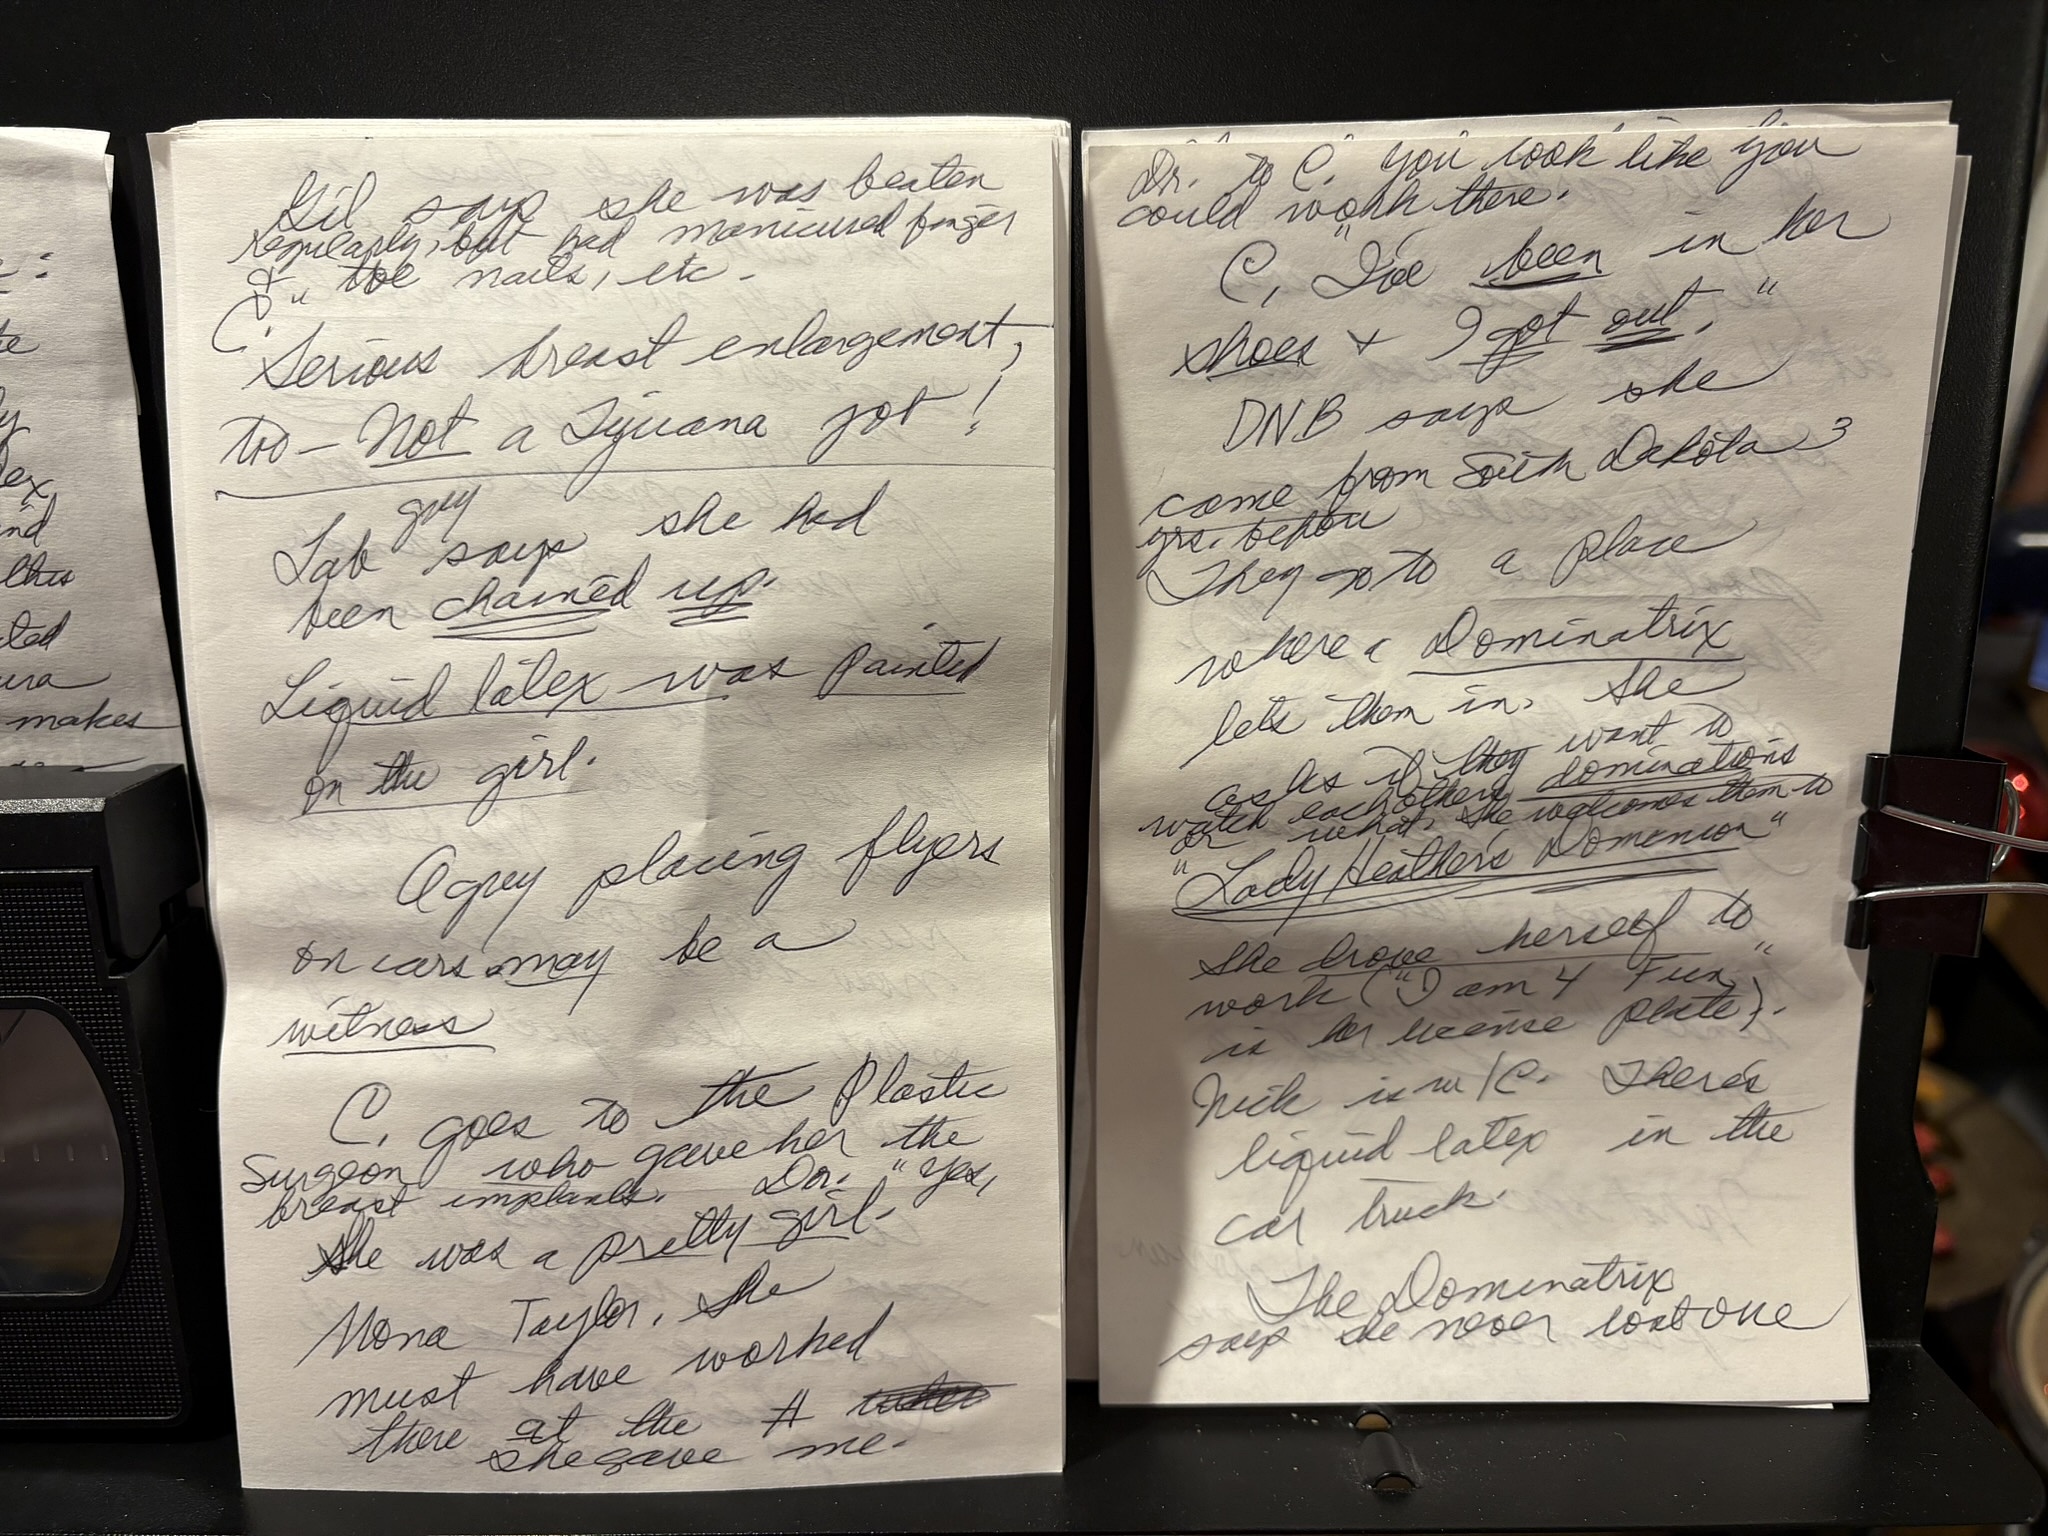 :
te
ly
ex
and
this
ted
ura
makes
Gil says she was beaten
regularly, but had manicured finger
& toe nails, etc.
C. "
Serious breast enlargement,
too — Not a Tijuana job!
guy
Lab says she had
been chained up.
Liquid latex was painted
on the girl.
A guy placing flyers
on cars may be a
witness
C. goes to the Plastic
Surgeon who gave her the
breast implants. Dr. "Yes,
She was a pretty girl.
Mona Taylor, She
must have worked
there at the #
she gave me.
Dr. to C. you look like you
could work there.
C, "I've been in her
shoes + I got out."
DNB says she
came from South Dakota 3
yrs. before
They go to a place
where a Dominatrix
lets them in. She
asks if they want to
watch each others dominations
or what. She welcomes them to
"Lady Heather's Domenion"
She drove herself to
work ("I am 4 Fun"
is her license plate).
Nick is w/C. There's
liquid latex in the
car truck.
The Dominatrix
says she never lost one